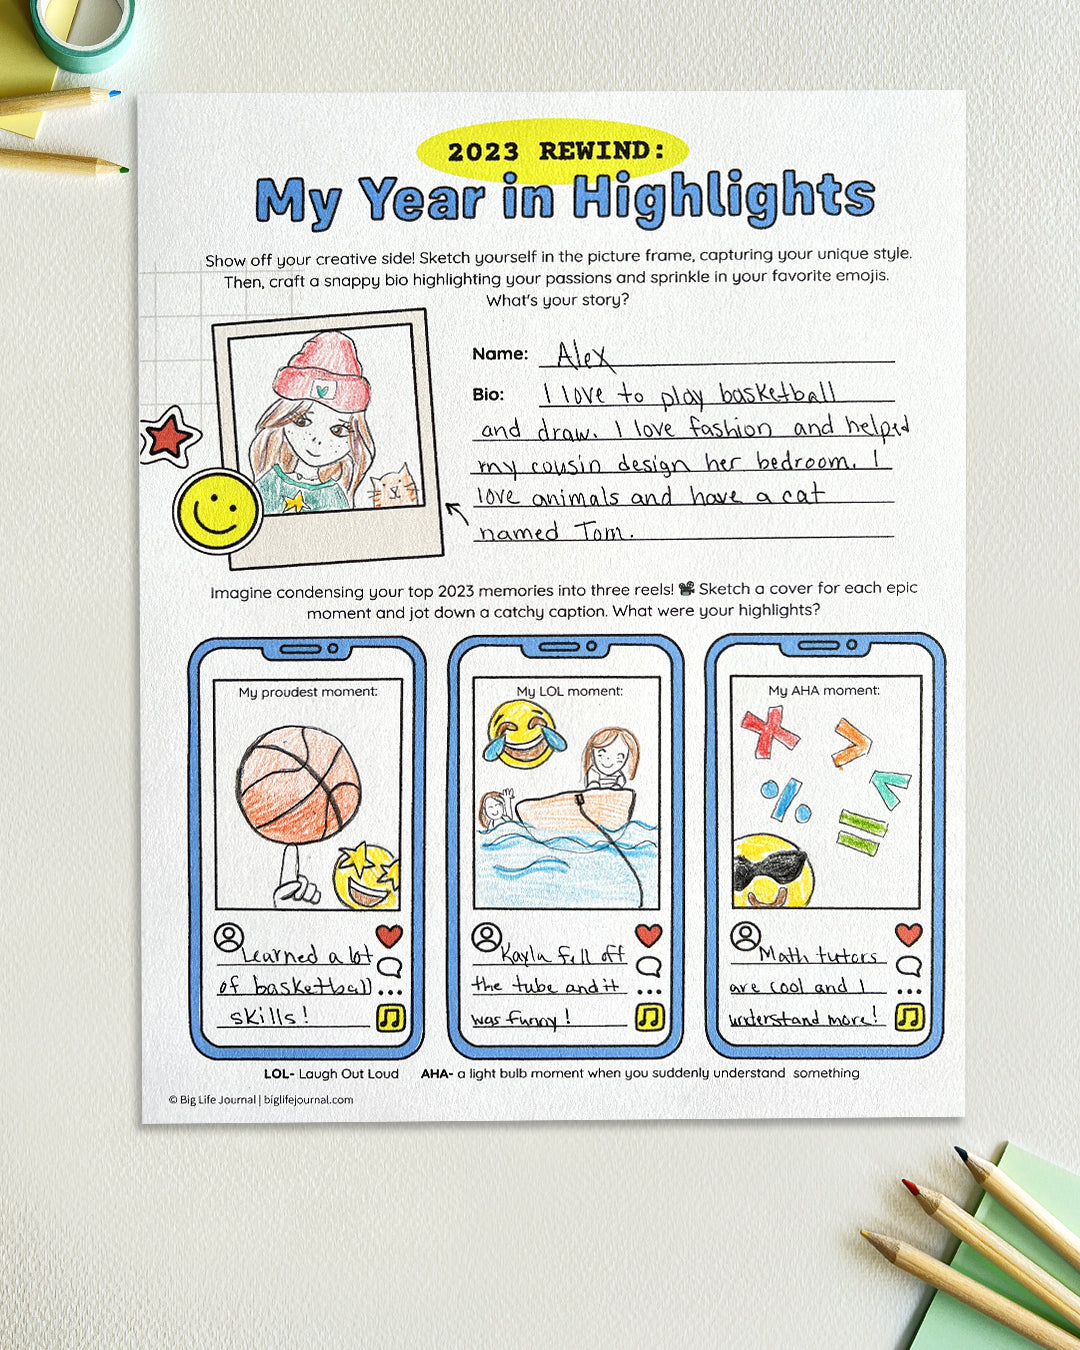 2023 REWIND:
My Year in Highlights
Show off your creative side! Sketch yourself in the picture frame, capturing your unique style.
Then, craft a snappy bio highlighting your passions and sprinkle in your favorite emojis.
What's your story?
Name: Alex
Bio: I love to play basketball
and draw. I love fashion and helped
my cousin design her bedroom. I
love animals and have a cat
named Tom.
Imagine condensing your top 2023 memories into three reels! 📽 Sketch a cover for each epic
moment and jot down a catchy caption. What were your highlights?
My proudest moment:
Learned a lot
of basketball
skills!
My LOL moment:
Kayla fell off
the tube and it
was funny!
My AHA moment:
Math tutors
are cool and I
understand more!
LOL- Laugh Out Loud AHA- a light bulb moment when you suddenly understand something
© Big Life Journal | biglifejournal.com